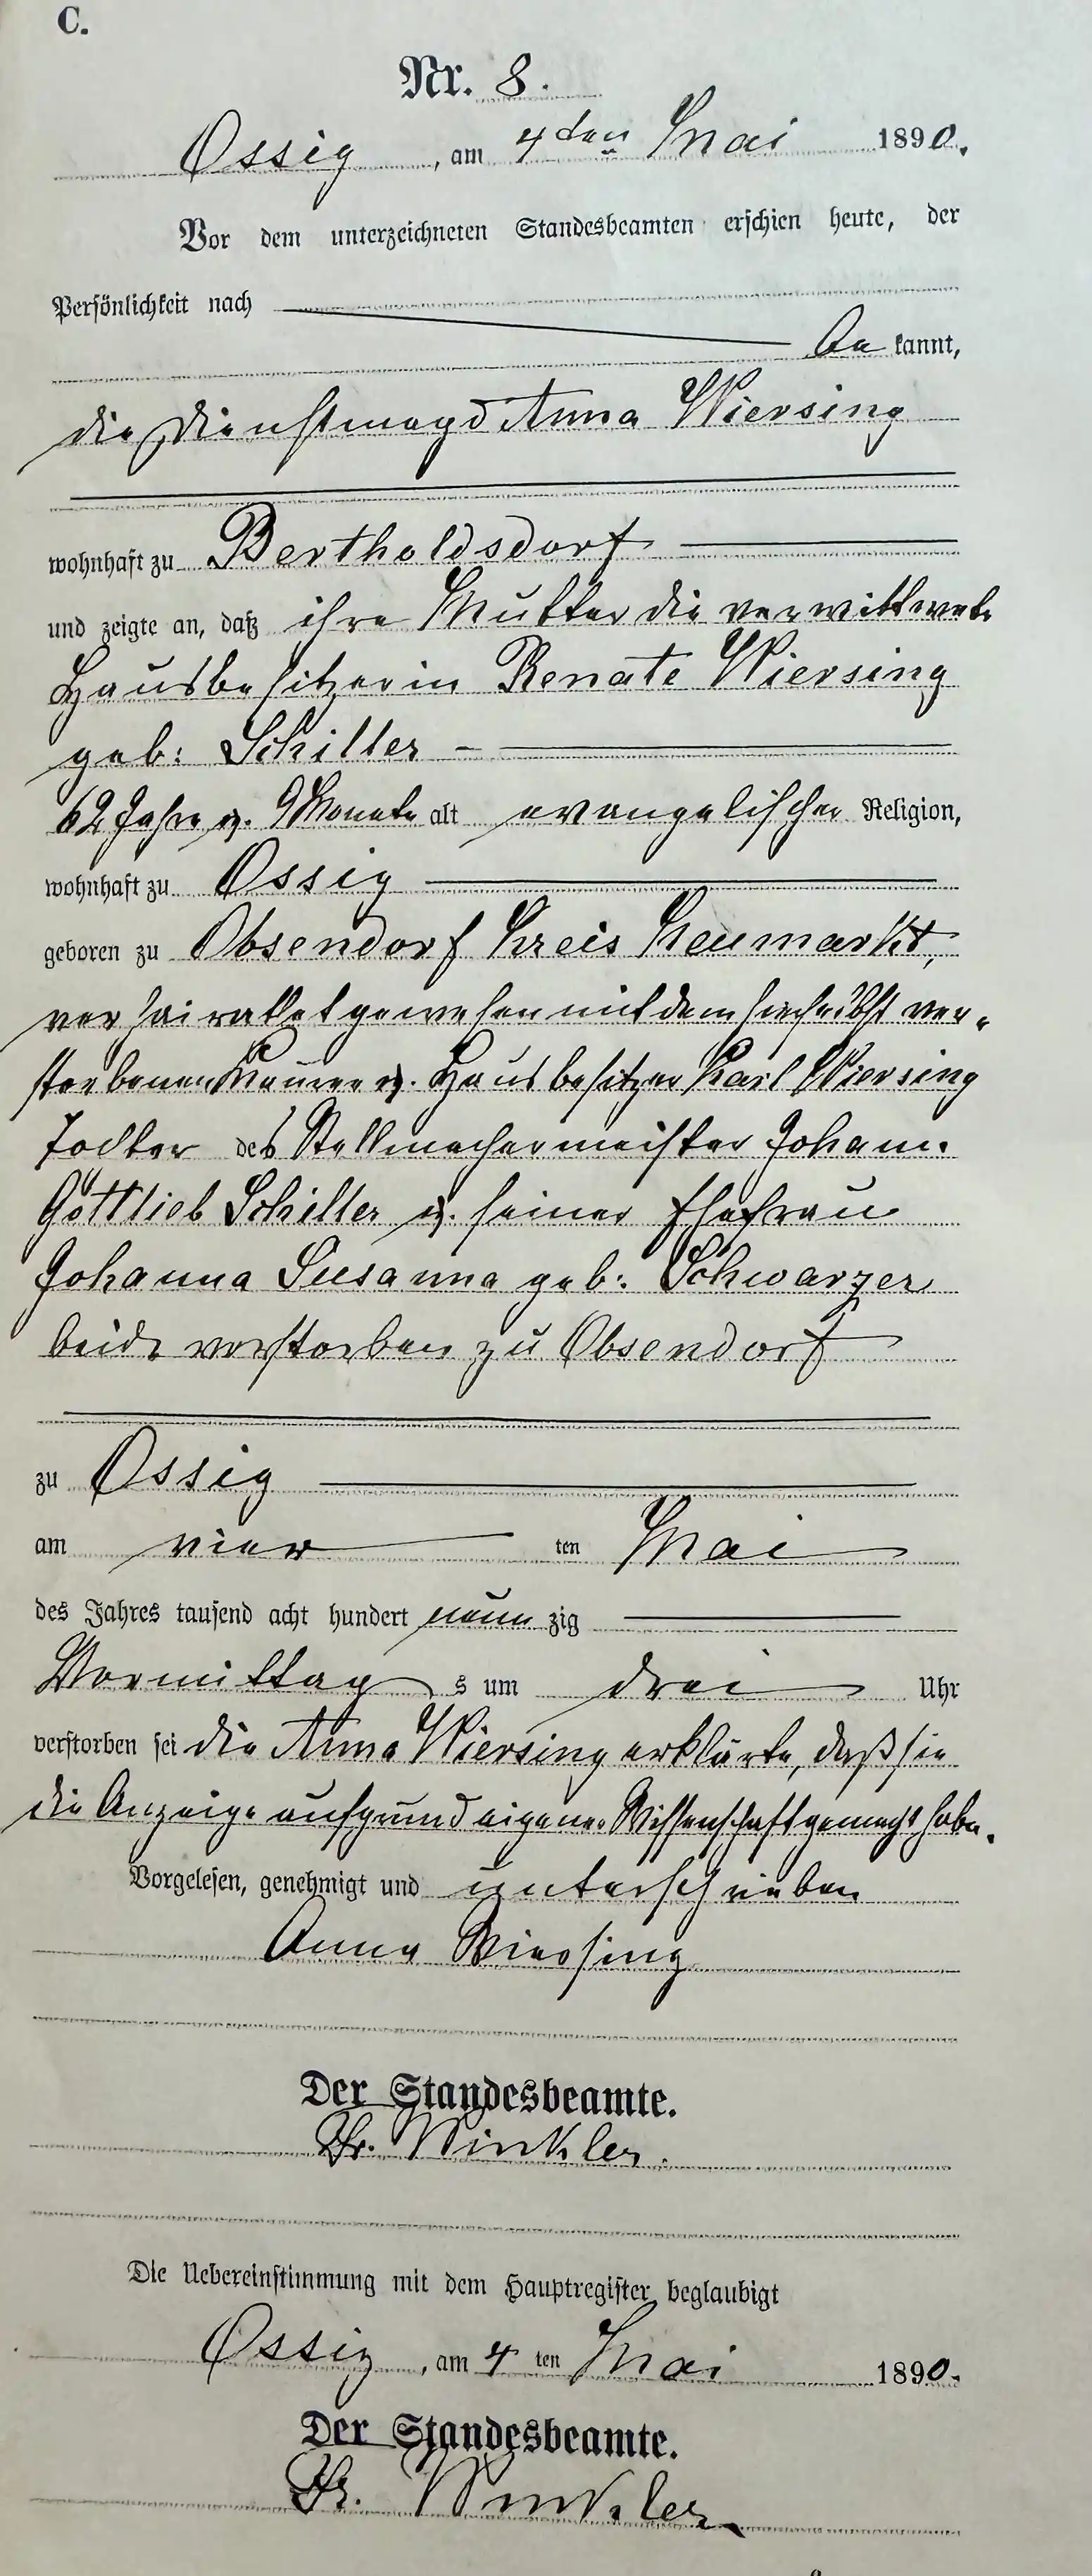 C.
Nr. 8.
Ossig, am 4ten Mai 1890.
Vor dem unterzeichneten Standesbeamten erschien heute, der
Persönlichkeit nach
bekannt,
die Dienstmagd Anna Wiersing
wohnhaft zu Bertholdsdorf
und zeigte an, daß ihre Mutter die verwittwete
Hausbesitzerin Renate Wiersing
geb: Schiller
62 Jahre u. 9 Monate alt evangelischer Religion,
wohnhaft zu Ossig
geboren zu Obsendorf Kreis Neumarkt,
verheirathet gewesen mit dem hierselbst ver-
storbenen Maurer u. Hausbesitzer Karl Wiersing
Tochter des Stellmachermeister Johann
Gottlieb Schiller u. seiner Ehefrau
Johanna Susanna geb: Schwarzer
beide verstorben zu Obsendorf
zu Ossig
am vierten Mai
des Jahres tausend acht hundert neunzig
Vormittags um drei Uhr
verstorben sei die Anna Wiersing erklärte, daß sie
die Anzeige aufgrund eigener Wissenschaft gemacht habe.
Vorgelesen, genehmigt und unterschrieben
Anna Wiersing
Der Standesbeamte.
Fr. Winkler.
Die Uebereinstimmung mit dem Hauptregister beglaubigt
Ossig, am 4ten Mai 1890.
Der Standesbeamte.
Fr. Winkler